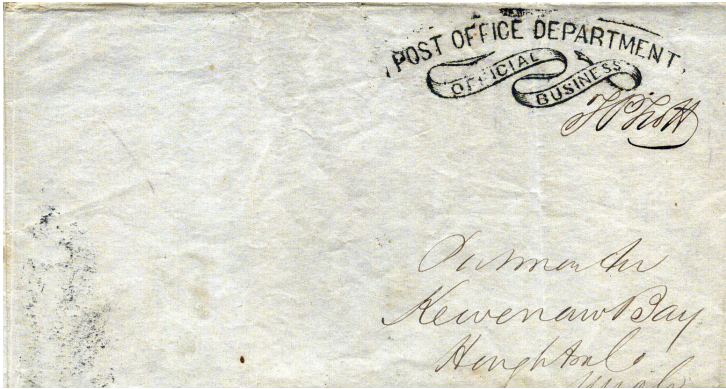 POST OFFICE DEPARTMENT,
OFFICIAL BUSINESS
Postmaster
Kewenaw Bay
Houghton Co
Mich